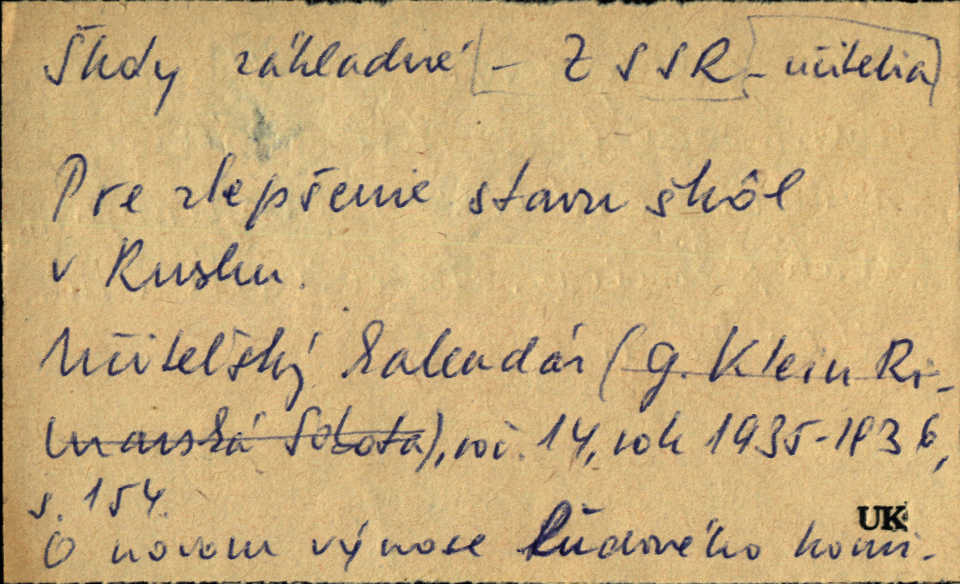 Školy základné - ZSSR - učitelia
Pre zlepšenie stavu škôl
v Rusku.
Učiteľský kalendár (G. Klein Ri-
mavská Sobota), roč. 14, rok 1935-1936,
s. 154.
O novom výnose Ľudového komi-
UK